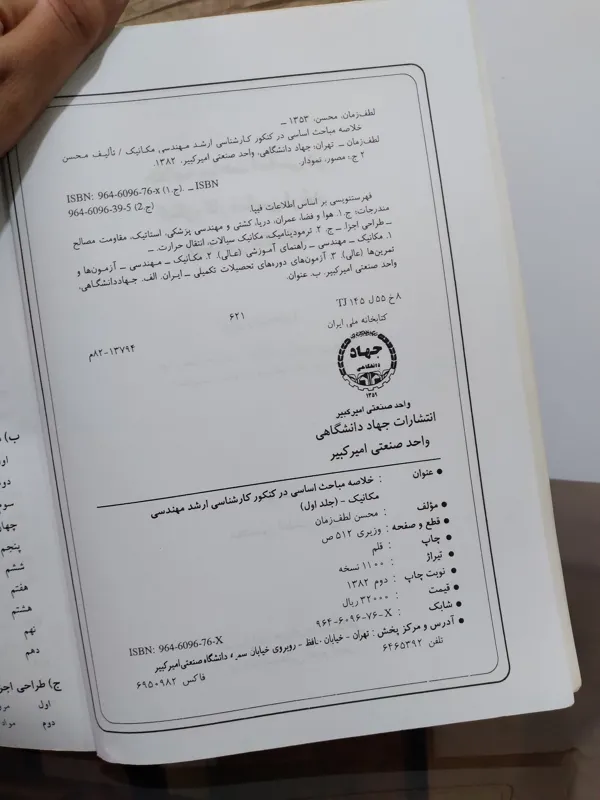 لطف‌زمان، محسن، ۱۳۵۳ ـ
خلاصه مباحث اساسی در کنکور کارشناسی ارشد مهندسی مکانیک / تألیف محسن
لطف‌زمان ـ تهران: جهاد دانشگاهی، واحد صنعتی امیرکبیر، ۱۳۸۲.
۲ ج.: مصور، نمودار.
ISBN: 964-6096-76-x (ج.۱) ـ ISBN
964-6096-39-5 (ج.2)
فهرستنویسی بر اساس اطلاعات فیپا.
مندرجات: ج.۱. هوا و فضا، عمران، دریا، کشتی و مهندسی پزشکی، استاتیک، مقاومت مصالح
ـ طراحی اجزا. ـ ج. ۲. ترمودینامیک، مکانیک سیالات، انتقال حرارت. ـ
۱. مکانیک ـ مهندسی ـ راهنمای آموزشی (عالی). ۲. مکانیک ـ مهندسی ـ آزمون‌ها و
تمرین‌ها (عالی). ۳. آزمون‌های دوره‌های تحصیلات تکمیلی ـ ایران. الف. جهاددانشگاهی،
واحد صنعتی امیرکبیر. ب. عنوان.
۸خ ۵۵ل ۱۴۵ TJ
۶۲۱
کتابخانه ملی ایران
۸۲-۱۳۷۹۴م
جهاد
دانشگاهی
۱۳۵۹
واحد صنعتی امیرکبیر
انتشارات جهاد دانشگاهی
واحد صنعتی امیرکبیر
● عنوان : خلاصه مباحث اساسی در کنکور کارشناسی ارشد مهندسی
مکانیک - (جلد اول)
● مؤلف : محسن لطف‌زمان
● قطع و صفحه : وزیری ۵۱۲ ص
● چاپ : قلم
● تیراژ : ۱۱۰۰ نسخه
● نوبت چاپ : دوم ۱۳۸۲
● قیمت : ۳۲۰۰۰ ریال
● شابک : ۹۶۴-۶۰۹۶-۷۶-X
ISBN: 964-6096-76-X
● آدرس و مرکز پخش : تهران - خیابان حافظ - روبروی خیابان سمیه دانشگاه صنعتی امیرکبیر
تلفن ۶۴۶۵۳۹۲
فاکس ۶۹۵۰۹۸۲
ب)
اول
دوم
سوم
چهار
پنجم
ششم
هفتم
هشتم
نهم
دهم
ج) طراحی اجز
اول
دوم